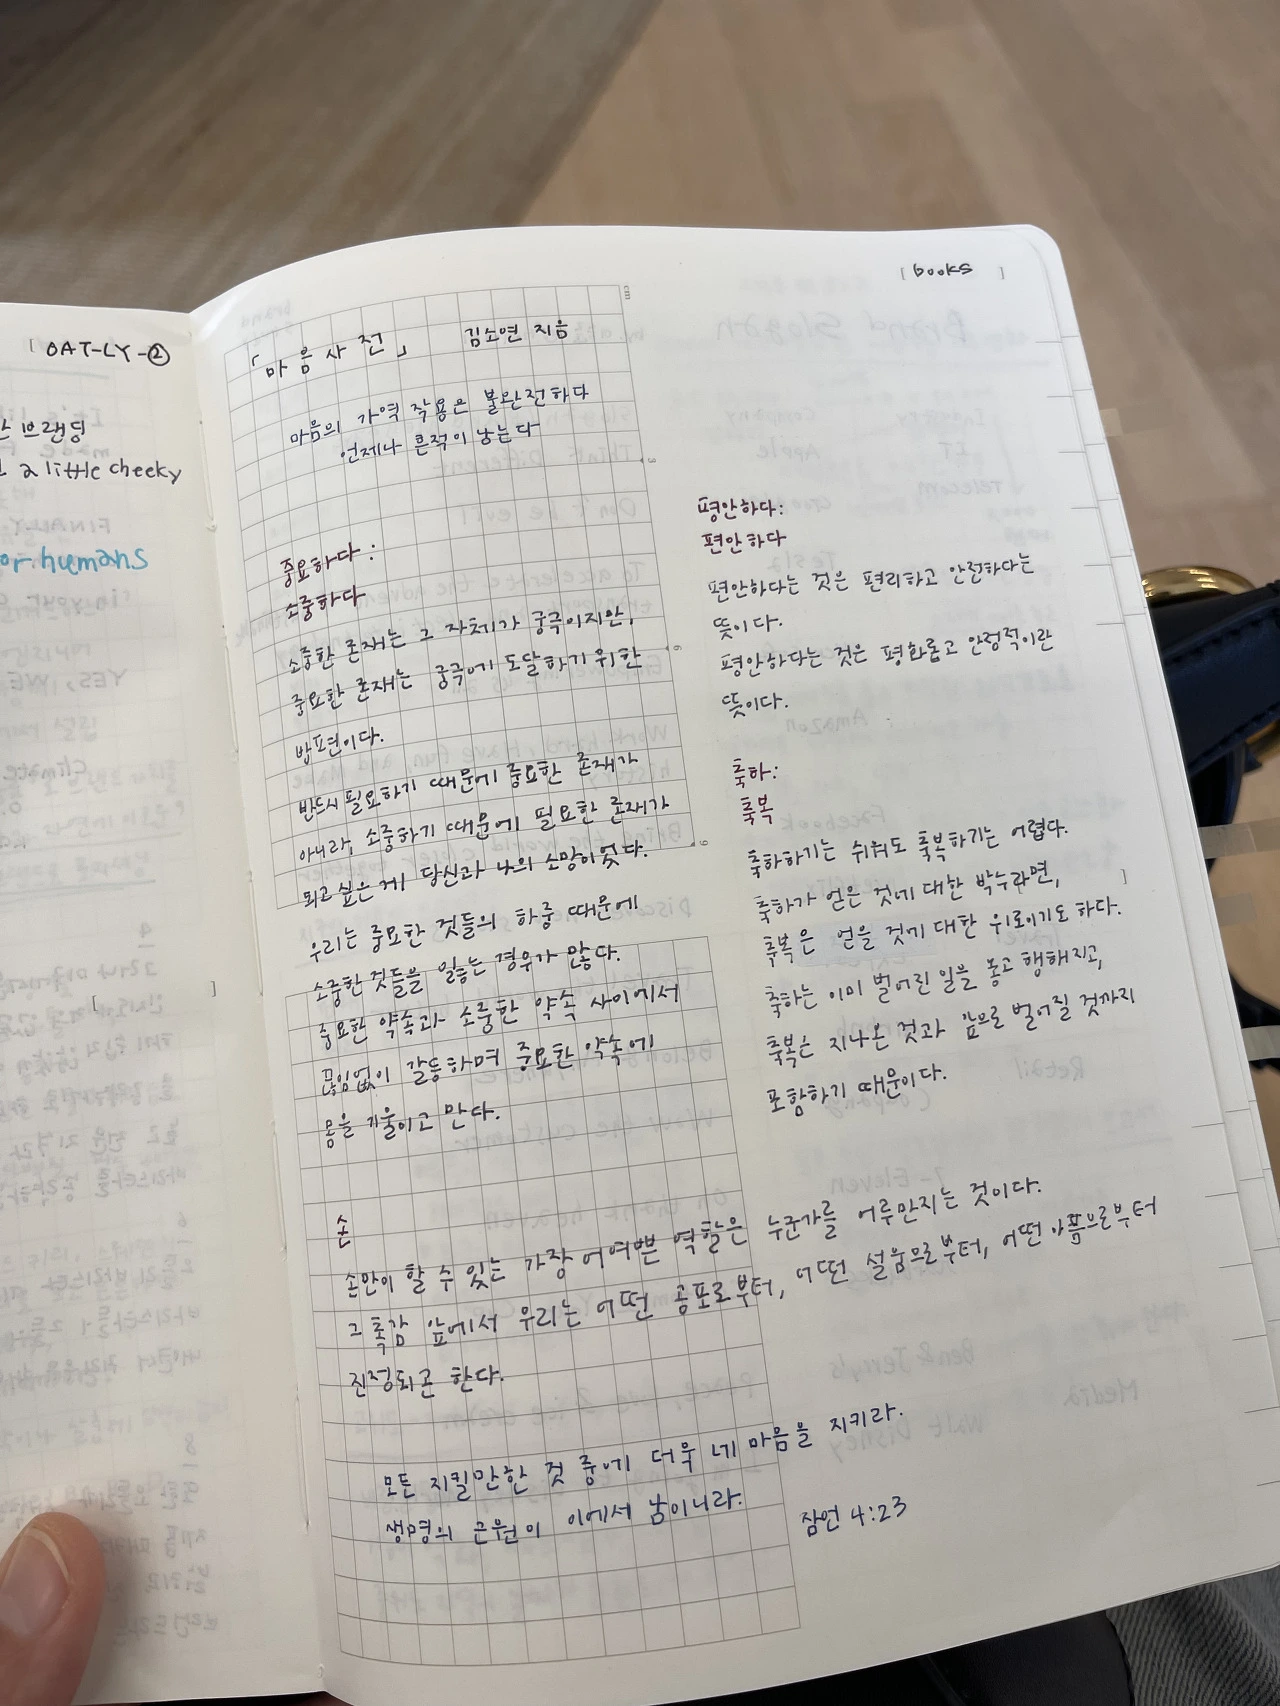 [OAT-LY-②
브랜딩
a little cheeky
or humans
[books ]
「마음사전」 김소연 지음
마음의 가역 작용은 불완전하다
언제나 흔적이 남는다
중요하다:
소중하다
소중한 존재는 그 자체가 궁극이지만,
중요한 존재는 궁극에 도달하기 위한
방편이다.
반드시 필요하기 때문에 중요한 존재가
아니라, 소중하기 때문에 필요한 존재가
되고 싶은 게 당신과 나의 소망이었다.
우리는 중요한 것들의 하중 때문에
소중한 것들을 잃는 경우가 많다.
중요한 약속과 소중한 약속 사이에서
끊임없이 갈등하며 중요한 약속에
몸을 기울이고 만다.
평안하다:
편안하다
편안하다는 것은 편리하고 안전하다는
뜻이다.
평안하다는 것은 평화롭고 안정적이란
뜻이다.
축하:
축복
축하하기는 쉬워도 축복하기는 어렵다.
축하가 얻은 것에 대한 박수라면,
축복은 얻을 것에 대한 위로이기도 하다.
축하는 이미 벌어진 일을 놓고 행해지고,
축복은 지나온 것과 앞으로 벌어질 것까지
포함하기 때문이다.
손
손만이 할 수 있는 가장 어여쁜 역할은 누군가를 어루만지는 것이다.
그 촉감 앞에서 우리는 어떤 공포로부터, 어떤 설움으로부터, 어떤 아픔으로부터
진정되곤 한다.
모든 지킬만한 것 중에 더욱 네 마음을 지키라.
생명의 근원이 이에서 남이니라. 잠언 4:23